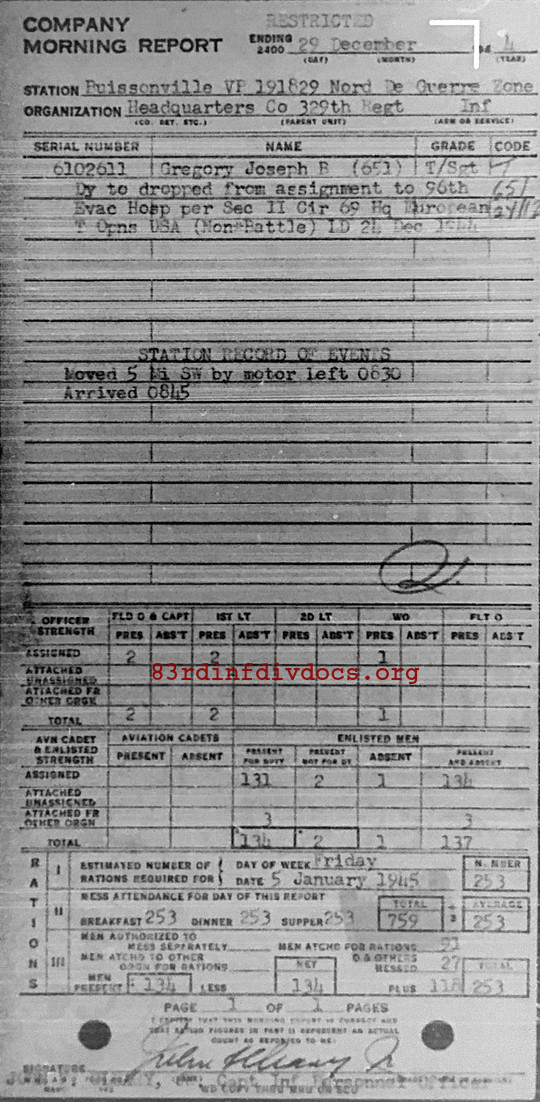 COMPANY
MORNING REPORT
RESTRICTED
ENDING 2400 29 December 194 4
(DAY) (MONTH) (YEAR)
STATION Buissonville VP 191829 Nord De Guerre Zone
ORGANIZATION Headquarters Co 329th Regt Inf
(CO. DET. ETC.) (PARENT UNIT) (ARM OR SERVICE)
SERIAL NUMBER NAME GRADE CODE
6102611 Gregory Joseph B (651) T/Sgt
Dy to dropped from assignment to 96th 651
Evac Hosp per Sec II Cir 69 Hq European
T Opns USA (Non-Battle) LD 24 Dec 1944
STATION RECORD OF EVENTS
Moved 5 Mi SW by motor left 0830
Arrived 0845
OFFICER STRENGTH FLD O & CAPT 1ST LT 2D LT WO FLT O
PRES ABS'T PRES ABS'T PRES ABS'T PRES ABS'T PRES ABS T
ASSIGNED 2 2 1
ATTACHED UNASSIGNED
83rdinfdivdocs.org
ATTACHED FR OTHER ORGN
TOTAL 2 2 1
AVN CADET & ENLISTED STRENGTH AVIATION CADETS ENLISTED MEN
PRESENT ABSENT PRESENT FOR DUTY PRESENT NOT FOR DY ABSENT PRESENT AND ABSENT
ASSIGNED 131 2 1 134
ATTACHED UNASSIGNED
ATTACHED FR OTHER ORGN 3 3
TOTAL 134 2 1 137
RATIONS
I ESTIMATED NUMBER OF RATIONS REQUIRED FOR DAY OF WEEK Friday NUMBER
DATE 5 January 1945 253
II MESS ATTENDANCE FOR DAY OF THIS REPORT TOTAL AVERAGE
BREAKFAST 253 DINNER 253 SUPPER 253 759 ÷ 3 253
III MEN AUTHORIZED TO MESS SEPARATELY MEN ATCHD FOR RATIONS 91
MEN ATCHD TO OTHER ORGN FOR RATIONS NET O & OTHERS MESSED 27 TOTAL
MEN PRESENT 134 LESS 134 PLUS 118 253
PAGE 1 OF 1 PAGES
I CERTIFY THAT THIS MORNING REPORT IS CORRECT AND
THAT RATION FIGURES IN PART II REPRESENT AN ACTUAL
COUNT AS REPORTED TO ME:
SIGNATURE
Capt Inf Personnel Officer